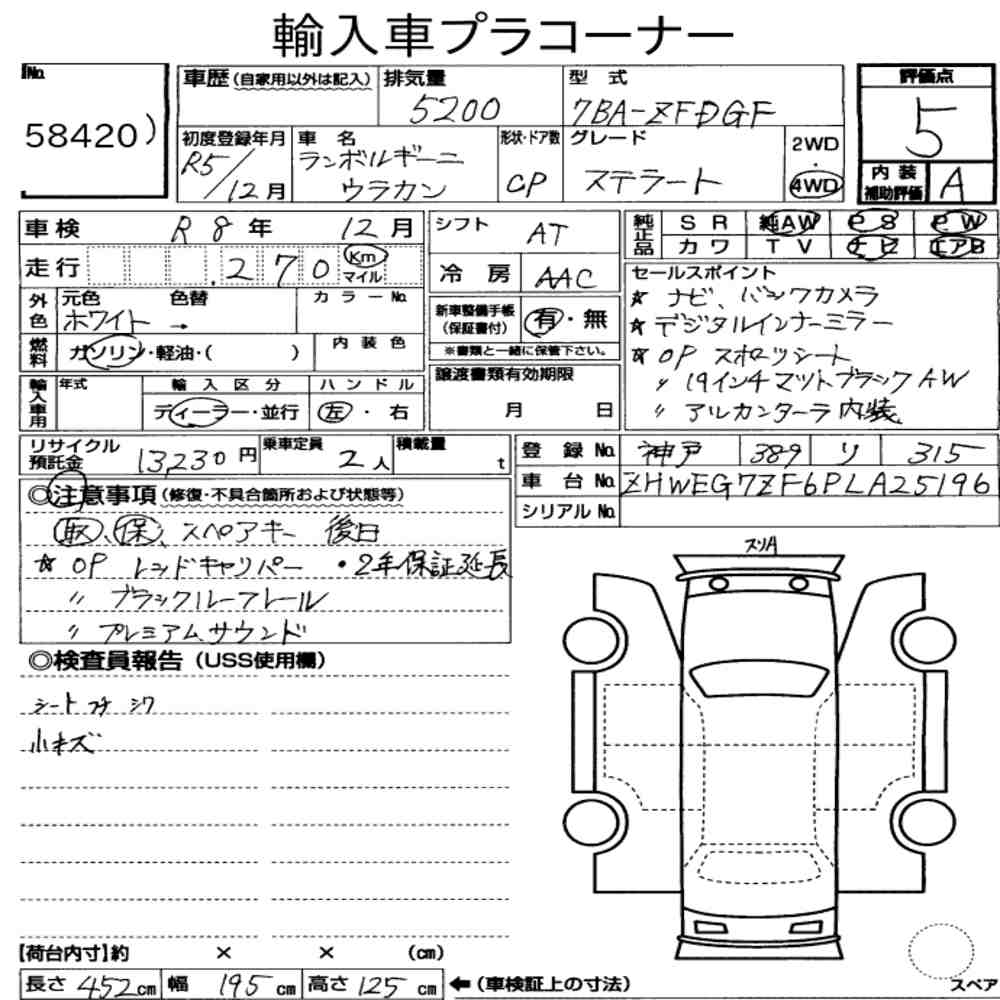 輸入車プラコーナー
No. 58420)
車歴(自家用以外は記入) 排気量 5200 型式 7BA-ZFDGF 評価点 5
初度登録年月 R5/12月 車名 ランボルギーニ ウラカン 形状・ドア数 CP グレード ステラート 2WD・4WD 内装補助評価 A
車検 R8年 12月 シフト AT 純正品 SR 純AW PS PW
カワ TV ナビ エアB
走行 270 Km マイル 冷房 AAC
外色 元色 ホワイト → 色替 カラーNo. 新車整備手帳(保証書付) 有・無
※書類と一緒に保管下さい。
燃料 ガソリン・軽油・( ) 内装色
セールスポイント
☆ ナビ、バックカメラ
☆ デジタルインナーミラー
☆ OP スポーツシート
〃 19インチマットブラックAW
〃 アルカンターラ内装
輸入車用 年式 輸入区分 ディーラー・並行 ハンドル 左・右 譲渡書類有効期限 月 日
リサイクル預託金 13230円 乗車定員 2人 積載量 t
登録No. 神戸 389 り 315
車台No. ZHWEG7ZF6PLA25196
シリアルNo.
◎注意事項(修復・不具合箇所および状態等)
取、保、スペアキー 後日
☆ OP レッドキャリパー ・2年保証延長
〃 ブラックルーフレール
〃 プレミアムサウンド
◎検査員報告(USS使用欄)
シート フチ シワ
小キズ
スリA
【荷台内寸】約 × × (cm)
長さ 452cm 幅 195cm 高さ 125cm ←(車検証上の寸法)
スペア